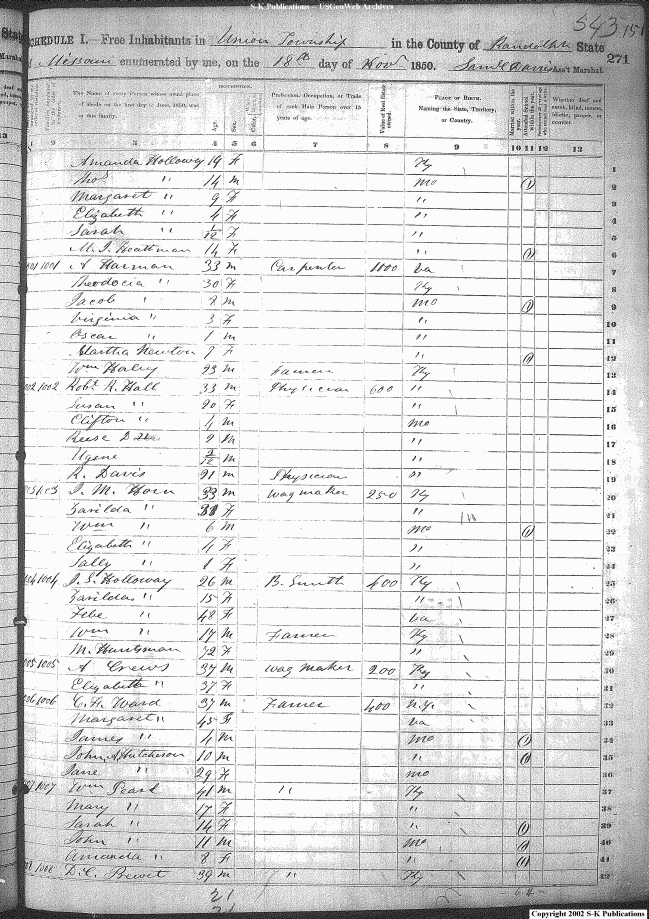 S-K Publications – USGenWeb Archives
543 151
SCHEDULE I.—Free Inhabitants in Union Township in the County of Randolph State
of Missouri enumerated by me, on the 18th day of Nov 1850. Saml Davis Ass't Marshal. 271
The Name of every Person whose usual place of abode on the first day of June, 1850, was in this family.
DESCRIPTION.
Age. Sex.
Profession, Occupation, or Trade of each Male Person over 15 years of age.
Value of Real Estate owned.
PLACE OF BIRTH. Naming the State, Territory, or Country.
Married within the year.
Attended School within the year.
Whether deaf and dumb, blind, insane, idiotic, pauper, or convict.
2 3 4 5 6 7 8 9 10 11 12 13
Amanda Holloway 19 F Ky 1
Thos " 14 m mo 1 2
Margaret " 9 F " 3
Elizabeth " 4 F " 4
Sarah " 1/12 F " 5
M. J. Heathman 14 F " 1 6
1001 A Harman 33 m Carpenter 1100 Va 7
Theodocia " 30 F Ky 8
Jacob " 8 m mo 1 9
Virginia " 3 F " 10
Oscar " 1 m " 11
Martha Newton 7 F " 1 12
Wm Haley 23 m Farmer Ky 13
1002 1002 Robt R. Hall 33 m Physician 600 " 14
Susan " 20 F " 15
Clifton " 4 m mo 16
Reese 2 m " 17
Ugene 2/12 m " 18
R. Davis 21 m Physician " 19
J. M. Horn 33 m Wag maker 250 Ky 20
Zarilda " 31 F " 21
Wm " 6 m mo 1 22
Elizabeth " 4 F " 23
Sally " 1 F " 24
1004 J. S. Holloway 26 m B. Smith 400 Ky 25
Zarildas " 15 F " 26
Febe " 48 F Va 27
Wm " 17 m Farmer Ky 28
M. Huntsman 72 F " 29
1005 1005 A Crews 37 m Wag maker 200 Ky 30
Elizabeth " 37 F " 31
1006 1006 C. H. Ward 37 m Farmer 400 N.Y. 32
Margaret " 45 F Va 33
James " 4 m mo 1 34
John A Hutcheson 10 m " 1 35
Jane " 29 F mo 36
1007 Wm Pearl 41 m " Ky 37
Mary " 17 F " 38
Sarah " 14 F " 1 39
John " 11 m mo 1 40
Amanda " 8 F " 1 41
1008 D. C. Prewet 39 m " Ky 42
21
Copyright 2002 S-K Publications